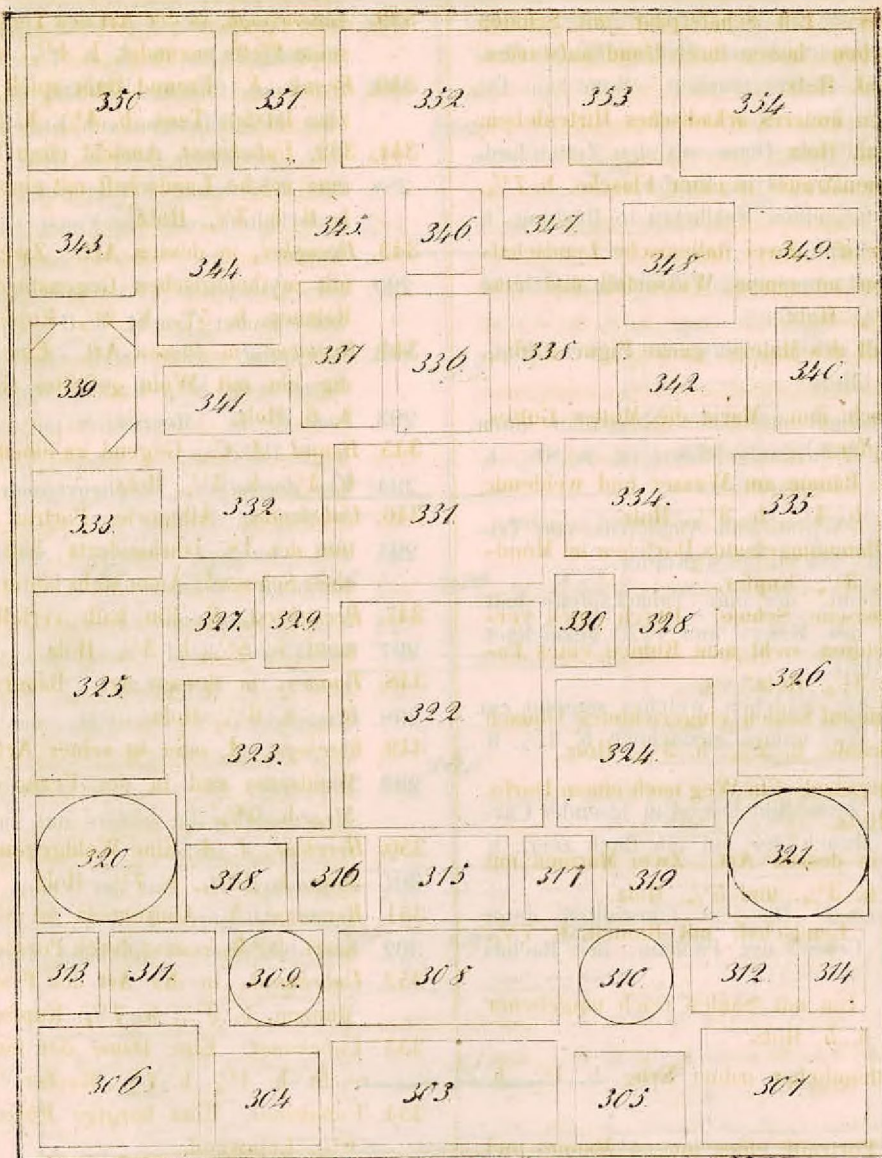 350 351 352 353 354
343. 344. 345. 346 347. 348. 349.
339. 341. 337 336. 338. 342. 340.
333. 332. 331. 334. 335.
327. 329. 330. 328.
325. 323. 322. 324. 326.
320. 318. 316. 315. 317. 319. 321.
313. 311. 309. 308. 310. 312. 314.
306. 304. 303. 305. 307.